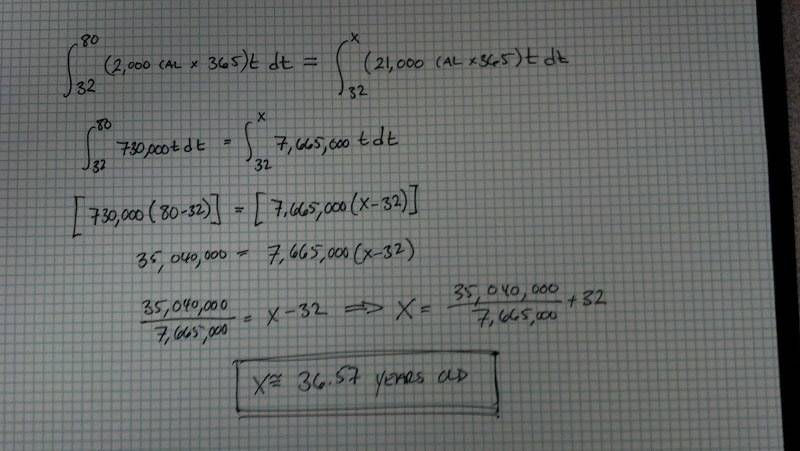 ∫₃₂⁸⁰ (2,000 CAL × 365)t dt = ∫₃₂ˣ (21,000 CAL × 365) t dt
∫₃₂⁸⁰ 730,000t dt = ∫₃₂ˣ 7,665,000 t dt
[730,000(80-32)] = [7,665,000(x-32)]
35,040,000 = 7,665,000(x-32)
35,040,000/7,665,000 = x-32 ⇒ x = 35,040,000/7,665,000 + 32
x ≅ 36.57 YEARS OLD